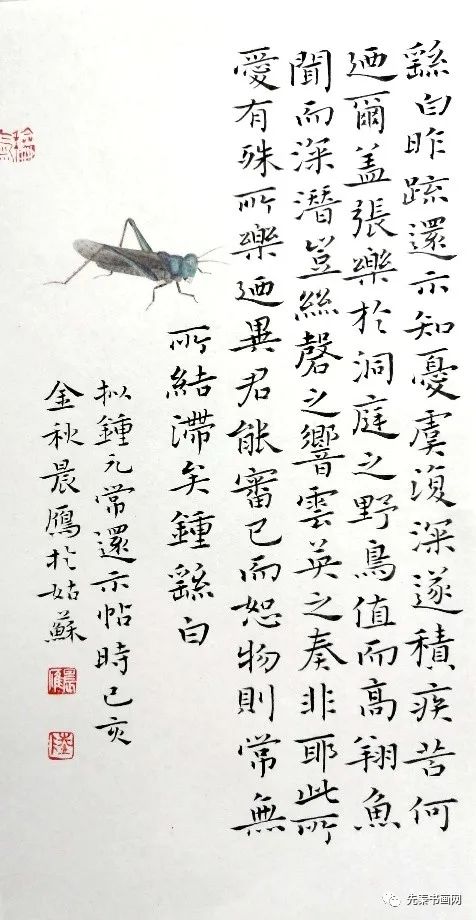 繇白昨疏還示知憂虞復深遂積疾苦何
迺爾盖張樂於洞庭之野鳥值而高翔魚
聞而深潛豈絲磬之響雲英之奏非耶此所
愛有殊所樂迺異君能審己而恕物則常無
所結滯矣鍾繇白
拟鍾元常還示帖時己亥
金秋晨鴈於姑蘇
先秦书画网